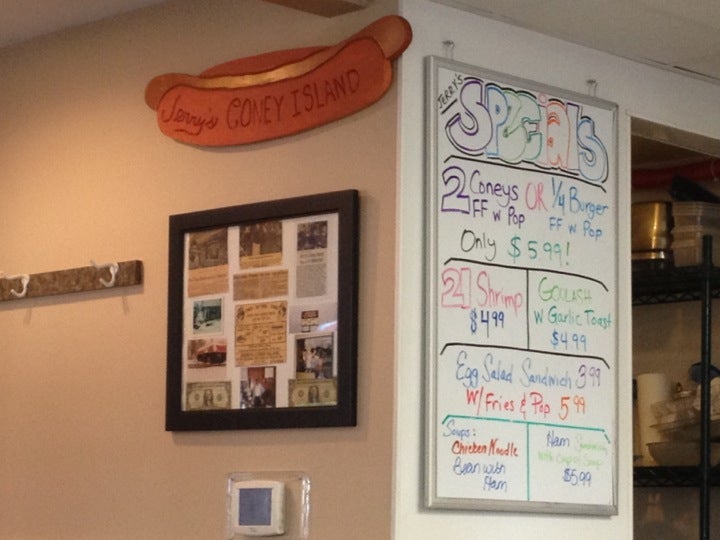 Jerry's CONEY ISLAND
JERRY'S
SPECialS
2 Coneys OR 1/4 Burger
FF w Pop FF w Pop
Only $5.99!
21 Shrimp
$4.99
GOULASH
W Garlic Toast
$4.99
Egg Salad Sandwich 3.99
W/Fries & Pop 5.99
Soups:
Chicken Noodle
Bean with
Ham
Ham Sandwich
with cup of Soup
$5.99